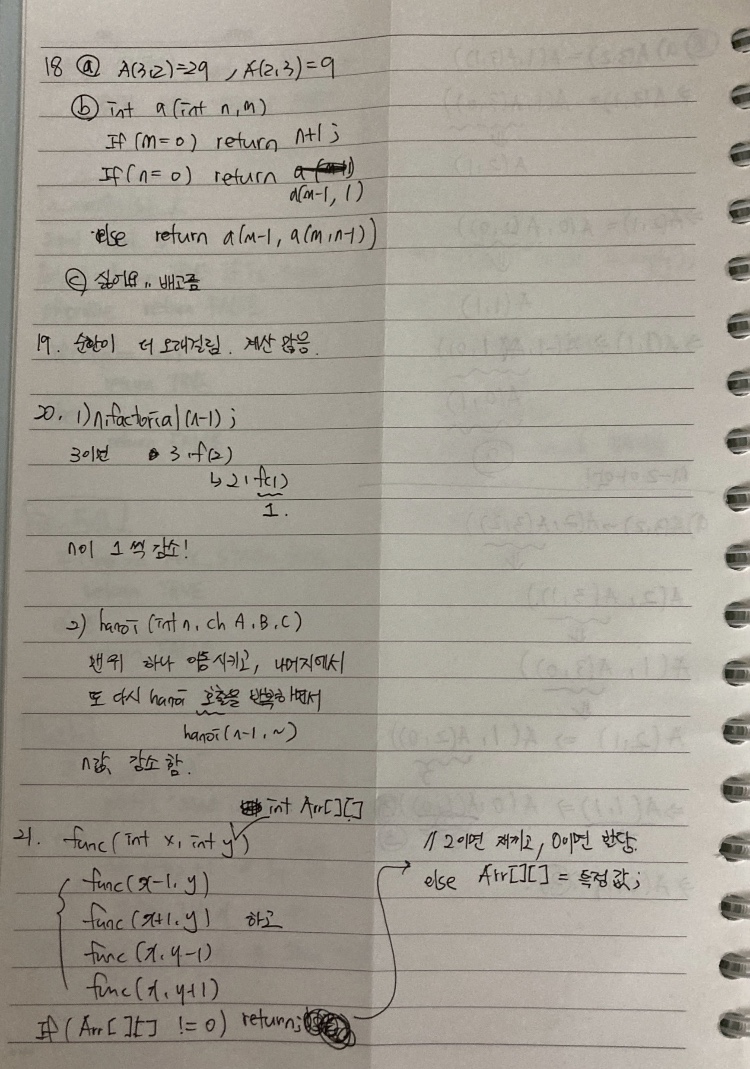 18 ⓐ A(3,2)=29 , A(2,3)=9
ⓑ int a(int n,m)
If(m=0) return n+1;
If(n=0) return
a(m-1, 1)
else return a(m-1, a(m,n-1))
ⓒ 싫어요.. 배고픔
19. 순환이 더 오래걸림. 계산 많음.
20. 1) n·factorial(n-1);
3이면 3·f(2)
↳ 2·f(1)
1.
n이 1씩 감소!
2) hanoi (int n, ch A,B,C)
맨위 하나 이동시키고, 나머지에서
또 다시 hanoi 호출을 반복하면서
hanoi(n-1,~)
n값 감소함.
int Arr[][]
21. func(int x, int y)
func(x-1, y)
func(x+1, y) 하고
func(x, y-1)
func(x, y+1)
If(Arr[][] != 0) return;
// 2이면 재끼고, 0이면 반답.
else Arr[][] = 특정값;